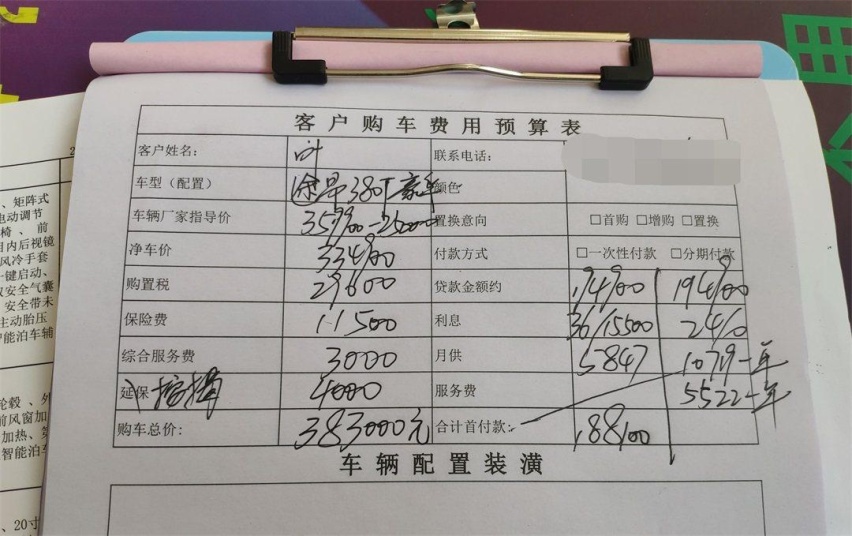 客户购车费用预算表
客户姓名: 叶 联系电话:
车型（配置） 途昂380T豪华 颜色
车辆厂家指导价 359900-25000 置换意向 □首购 □增购 □置换
净车价 334900 付款方式 □一次性付款 □分期付款
购置税 29600 贷款金额约 194900 194900
保险费 11500 利息 36/15500 24/0
综合服务费 3000 月供 5847 一年
延保 4000 服务费 5522一年
购车总价: 383000元 合计首付款: 188100
车辆配置装潢
、矩阵式
电动调节
椅、前
目内后视镜
风冷手套
一键启动、
安全气囊
安全带未
主动胎压
智能泊车辅
轮毂、外
前风窗加
加热、第
智能泊车
、20寸